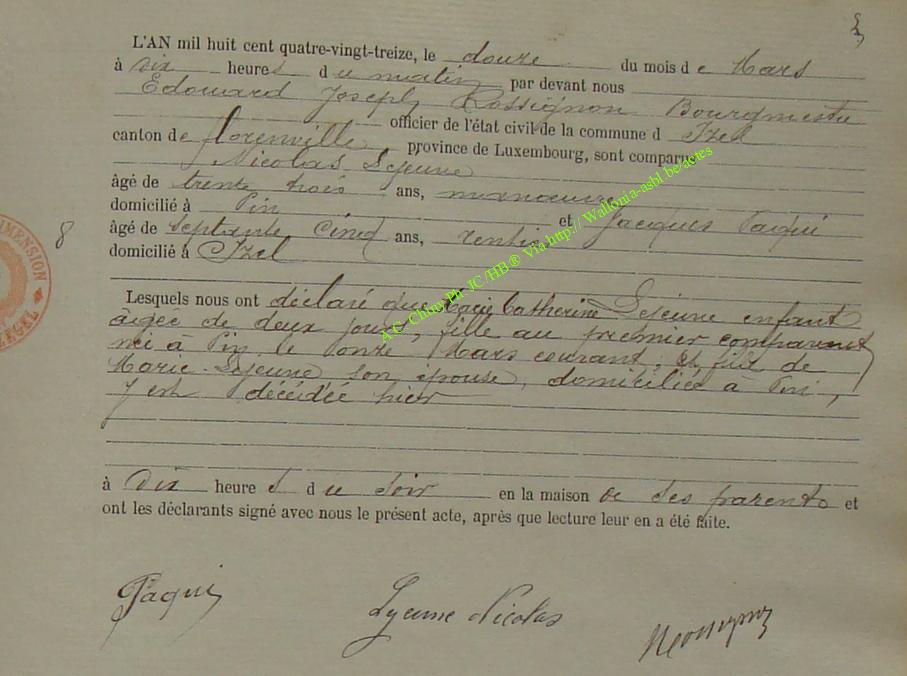 L'AN mil huit cent quatre-vingt-treize, le douze du mois de Mars
à dix heures du matin par devant nous
Edouard Joseph Rossignon Bourgmestre
officier de l'état civil de la commune d Izel
canton de florenville province de Luxembourg, sont comparus
Nicolas Lejeune
âgé de trente trois ans, manœuvre
domicilié à Pin et Jacques Paqui
âgé de Septante Cinq ans, rentier
domicilié à Izel
8
Lesquels nous ont déclaré que Catherine Lejeune enfant
âgée de deux jours, fille au premier comparant
née à Pin le onze Mars courant, et fille de
Marie Lejeune son épouse, domiciliée à Pin,
y est décédée hier
à Dix heures du Soir en la maison de ses parents et
ont les déclarants signé avec nous le présent acte, après que lecture leur en a été faite.
Paqui Lejeune Nicolas Rossignon
A.C. Chiny Ph-JC/HB® Via http://Wallonia-asbl.be/actes